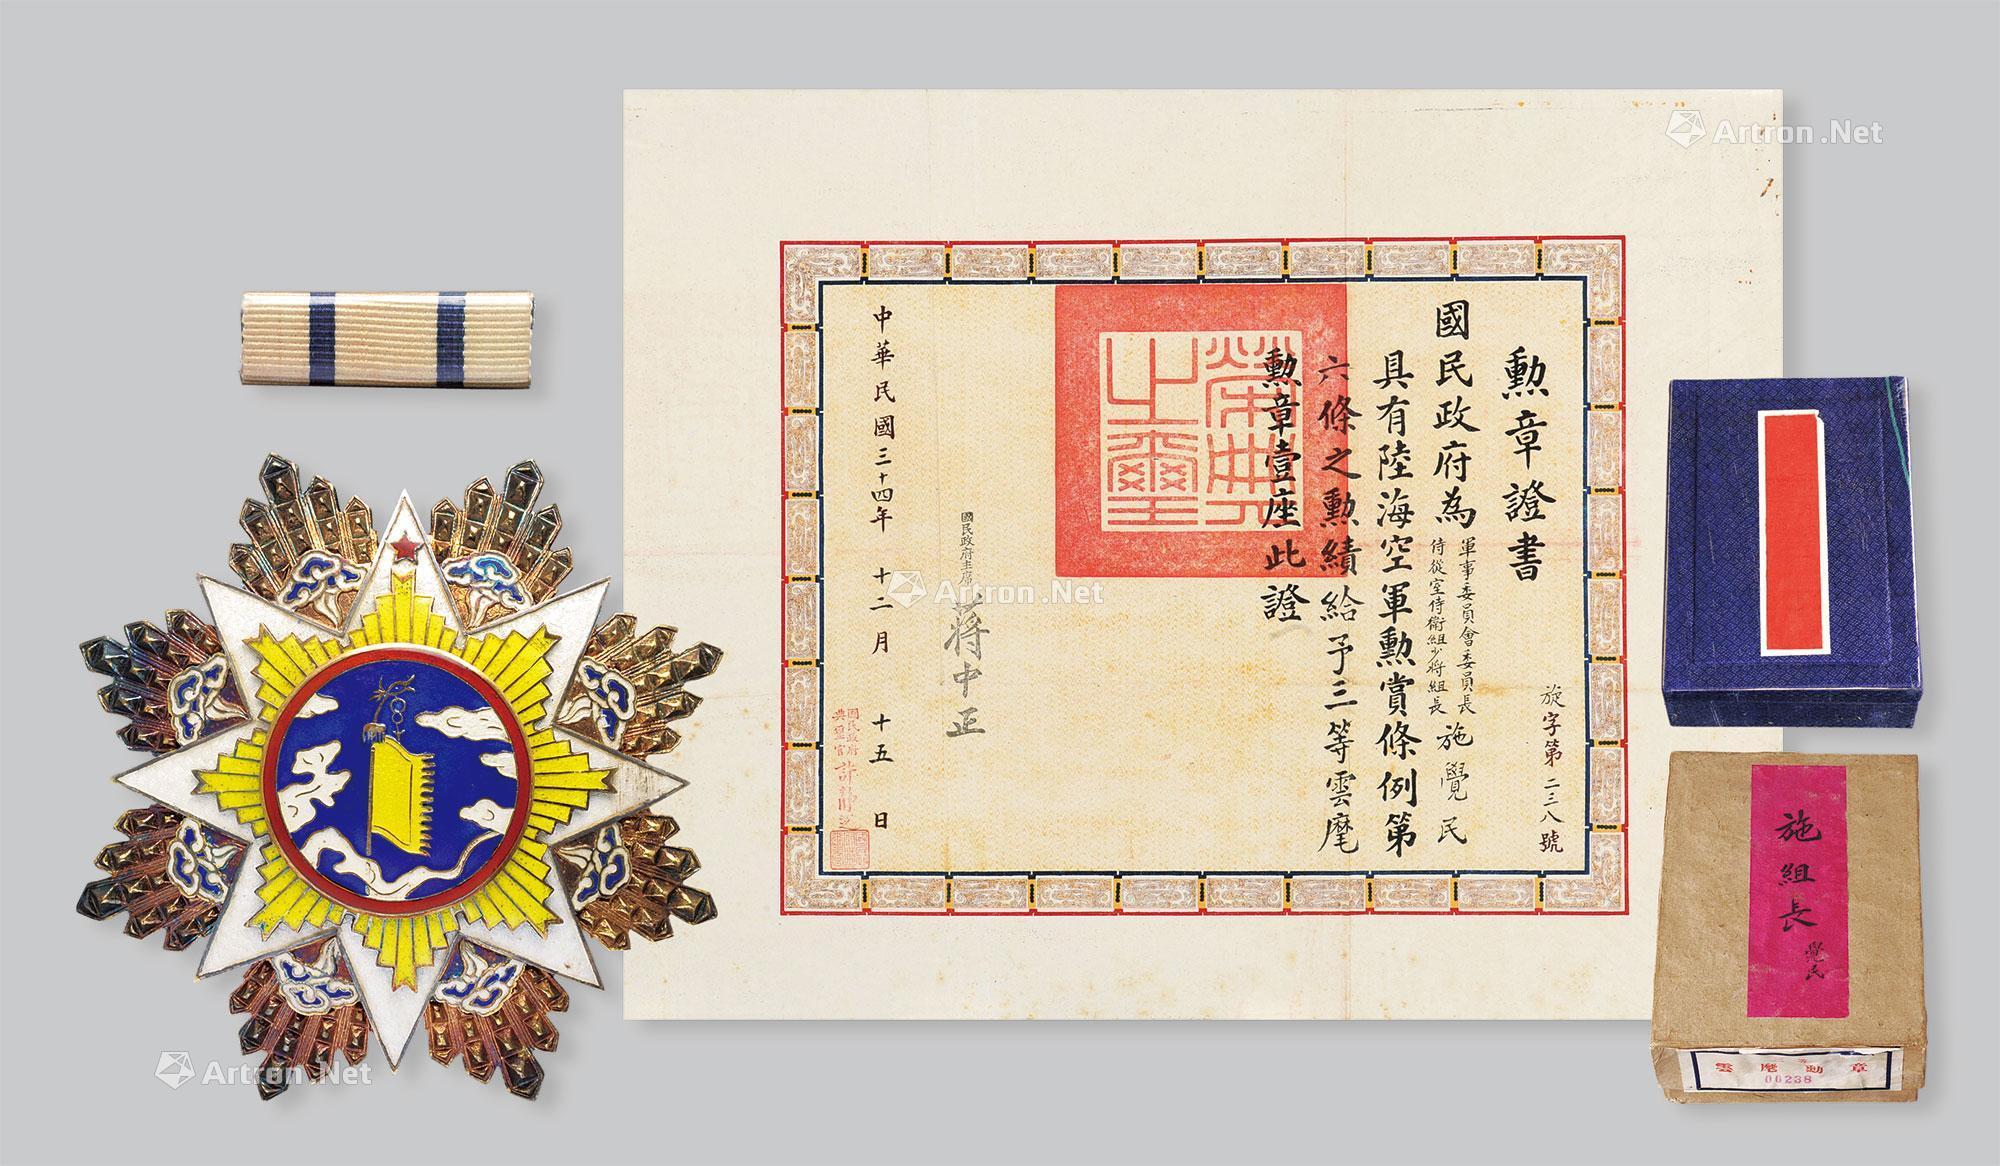 勲章證書
旋字第二三八號
國民政府為
軍事委員會委員長
侍從室侍衛組少將組長
施覺民
具有陸海空軍勲賞條例第
六條之勲績給予三等雲麾
勲章壹座此證
榮典之璽
國民政府主席
蔣中正
中華民國三十四年十二月十五日
國民政府
典璽官
許靜芝
施組長
覺民
雲麾勛章
00238
Artron.Net
Artron.Net
Artron.Net